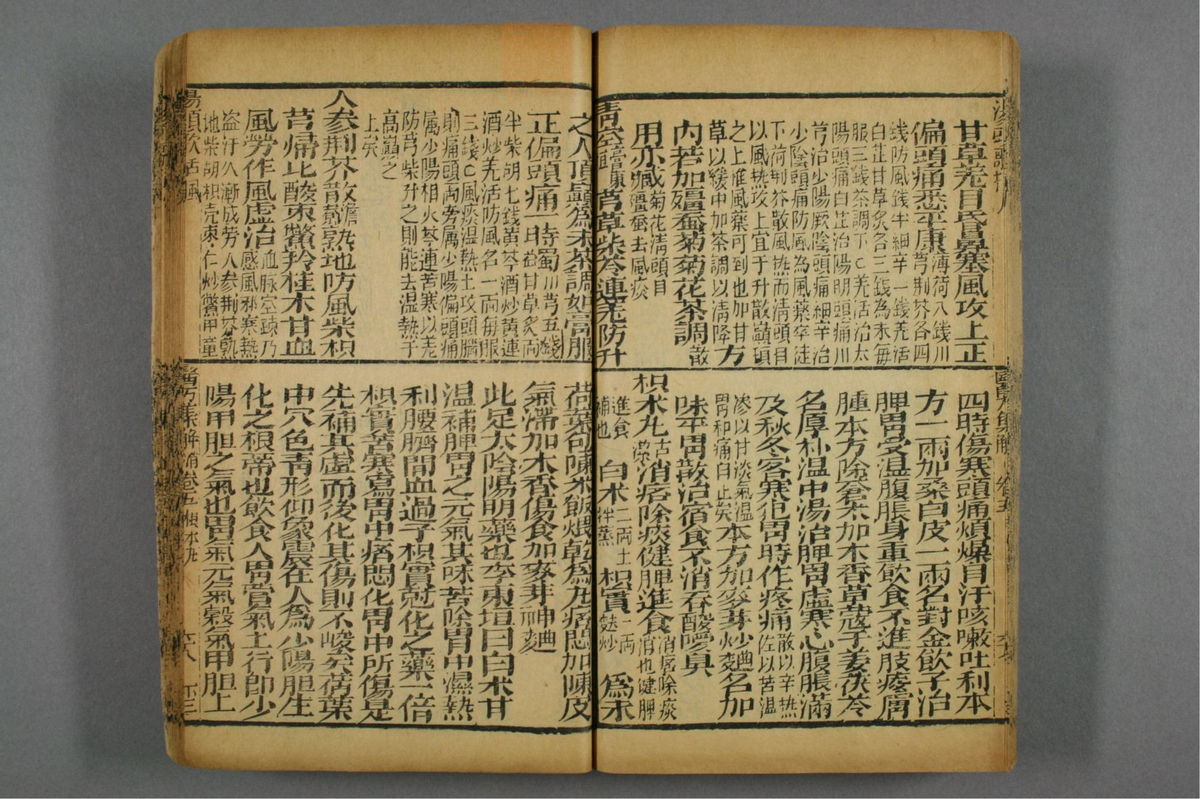 甘草羌目昏鼻塞風攻上正
偏頭痛悉平康薄荷八錢川芎荆芥各四
錢防風錢半細辛一錢羌活
白芷甘草炙各三錢為末每
服三錢茶調下羌活治太
陽頭痛白芷治陽明頭痛川
芎治少陽厥陰頭痛細辛治
少陰頭痛防風為風藥卒徒
下荷荆芥散風熱而清頭目
以風熱攻上宜于升散巔頂
之上惟風藥可到也加甘
草以緩中加茶調以清降方
內若加殭蠶菊菊花茶調散
用亦臧菊花清頭目
殭蠶去風痰
青空芎草柴芩連羌防升
之入頂巔為末茶調如膏服
正偏頭痛一時蜀川芎五錢
日益甘草炙一兩
半柴胡七錢黃芩酒炒黃連
酒炒羌活防風各一兩每服
三錢風痰溫熱上攻頭腦
則痛頭兩旁属少陽偏頭痛
属少陽相火芩連苦寒以羌
防芎柴升之則能去溫熱于
高巔之
上矣
人參荆芥散熟地防風柴枳
芎歸比酸棗鱉羚桂木甘血
風勞作風虛治血脈空疎乃
感風邪寒熱
盜汗久漸成勞人參荆芥熟
地柴胡枳売棗仁炒鱉甲童
四時傷寒頭痛煩燥自汗咳嗽吐利本
方一兩加桑白皮一兩名對金飲子治
脾胃受溫腹脹身重飲食不進肢痠膚
腫本方除蒼朮加木香草蔻子姜茯苓
名厚朴溫中湯治脾胃虛寒心腹脹滿
及秋冬客寒犯胃時作疼痛散以辛热
佐以苦温
滲以甘淡氣温
胃和痛自止矣本方加麥芽炒麯名加
味平胃散治宿食不消吞酸噯臭
枳朮丸潔古消痞除痰健脾進食消痞除痰
消也健脾
進食
補也白朮二兩土
拌蒸枳實一兩
麩炒為末
荷葉包陳米飯煨乾為丸痞悶加陳皮
氣滯加木香傷食加麥芽神麯
此足太陰陽明藥也李東垣曰白朮甘
温補脾胃之元氣其味苦除胃中濕熱
利腰臍間血過于枳實尅化之藥一倍
枳實苦寒瀉胃中痞悶化胃中所傷是
先補其虛而後化其傷則不峻矣荷葉
中穴色青形仰象震在人為少陽胆生
化之根蒂也飲食入胃營氣上行即少
陽甲胆之氣也胃氣元氣穀氣甲胆上